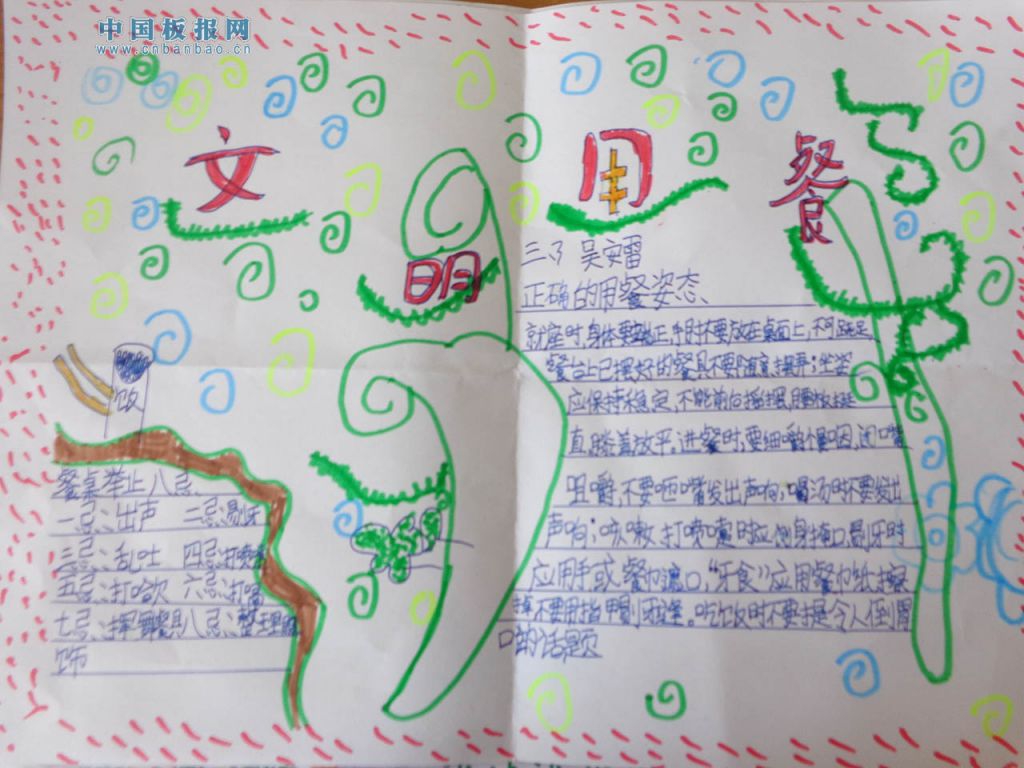 中国板报网
www.cnbanbao.cn
文
明
用
餐
饭
餐桌举止八忌、
一忌、出声 二忌、剔牙
三忌、乱吐 四忌、打喷嚏
五忌、打哈欠 六忌、打嗝
七忌、挥舞餐具 八忌、整理服
饰
三、3 吴安雷
正确的用餐姿态、
就座时,身体要端正,手肘不要放在桌面上,不可跷足,
餐台上已摆好的餐具不要随意摆弄;坐姿
应保持稳定,不能前后摇摆,腰板挺
直,膝盖放平,进餐时,要细嚼慢咽,闭嘴
咀嚼,不要咂嘴发出声响,喝汤时不要发出
声响;咳嗽、打喷嚏时应侧身掩口,剔牙时
应用手或餐巾遮口,“牙食”应用餐巾纸擦
掉不要用指甲剔。吃饭时不要提令人倒胃
口的话题